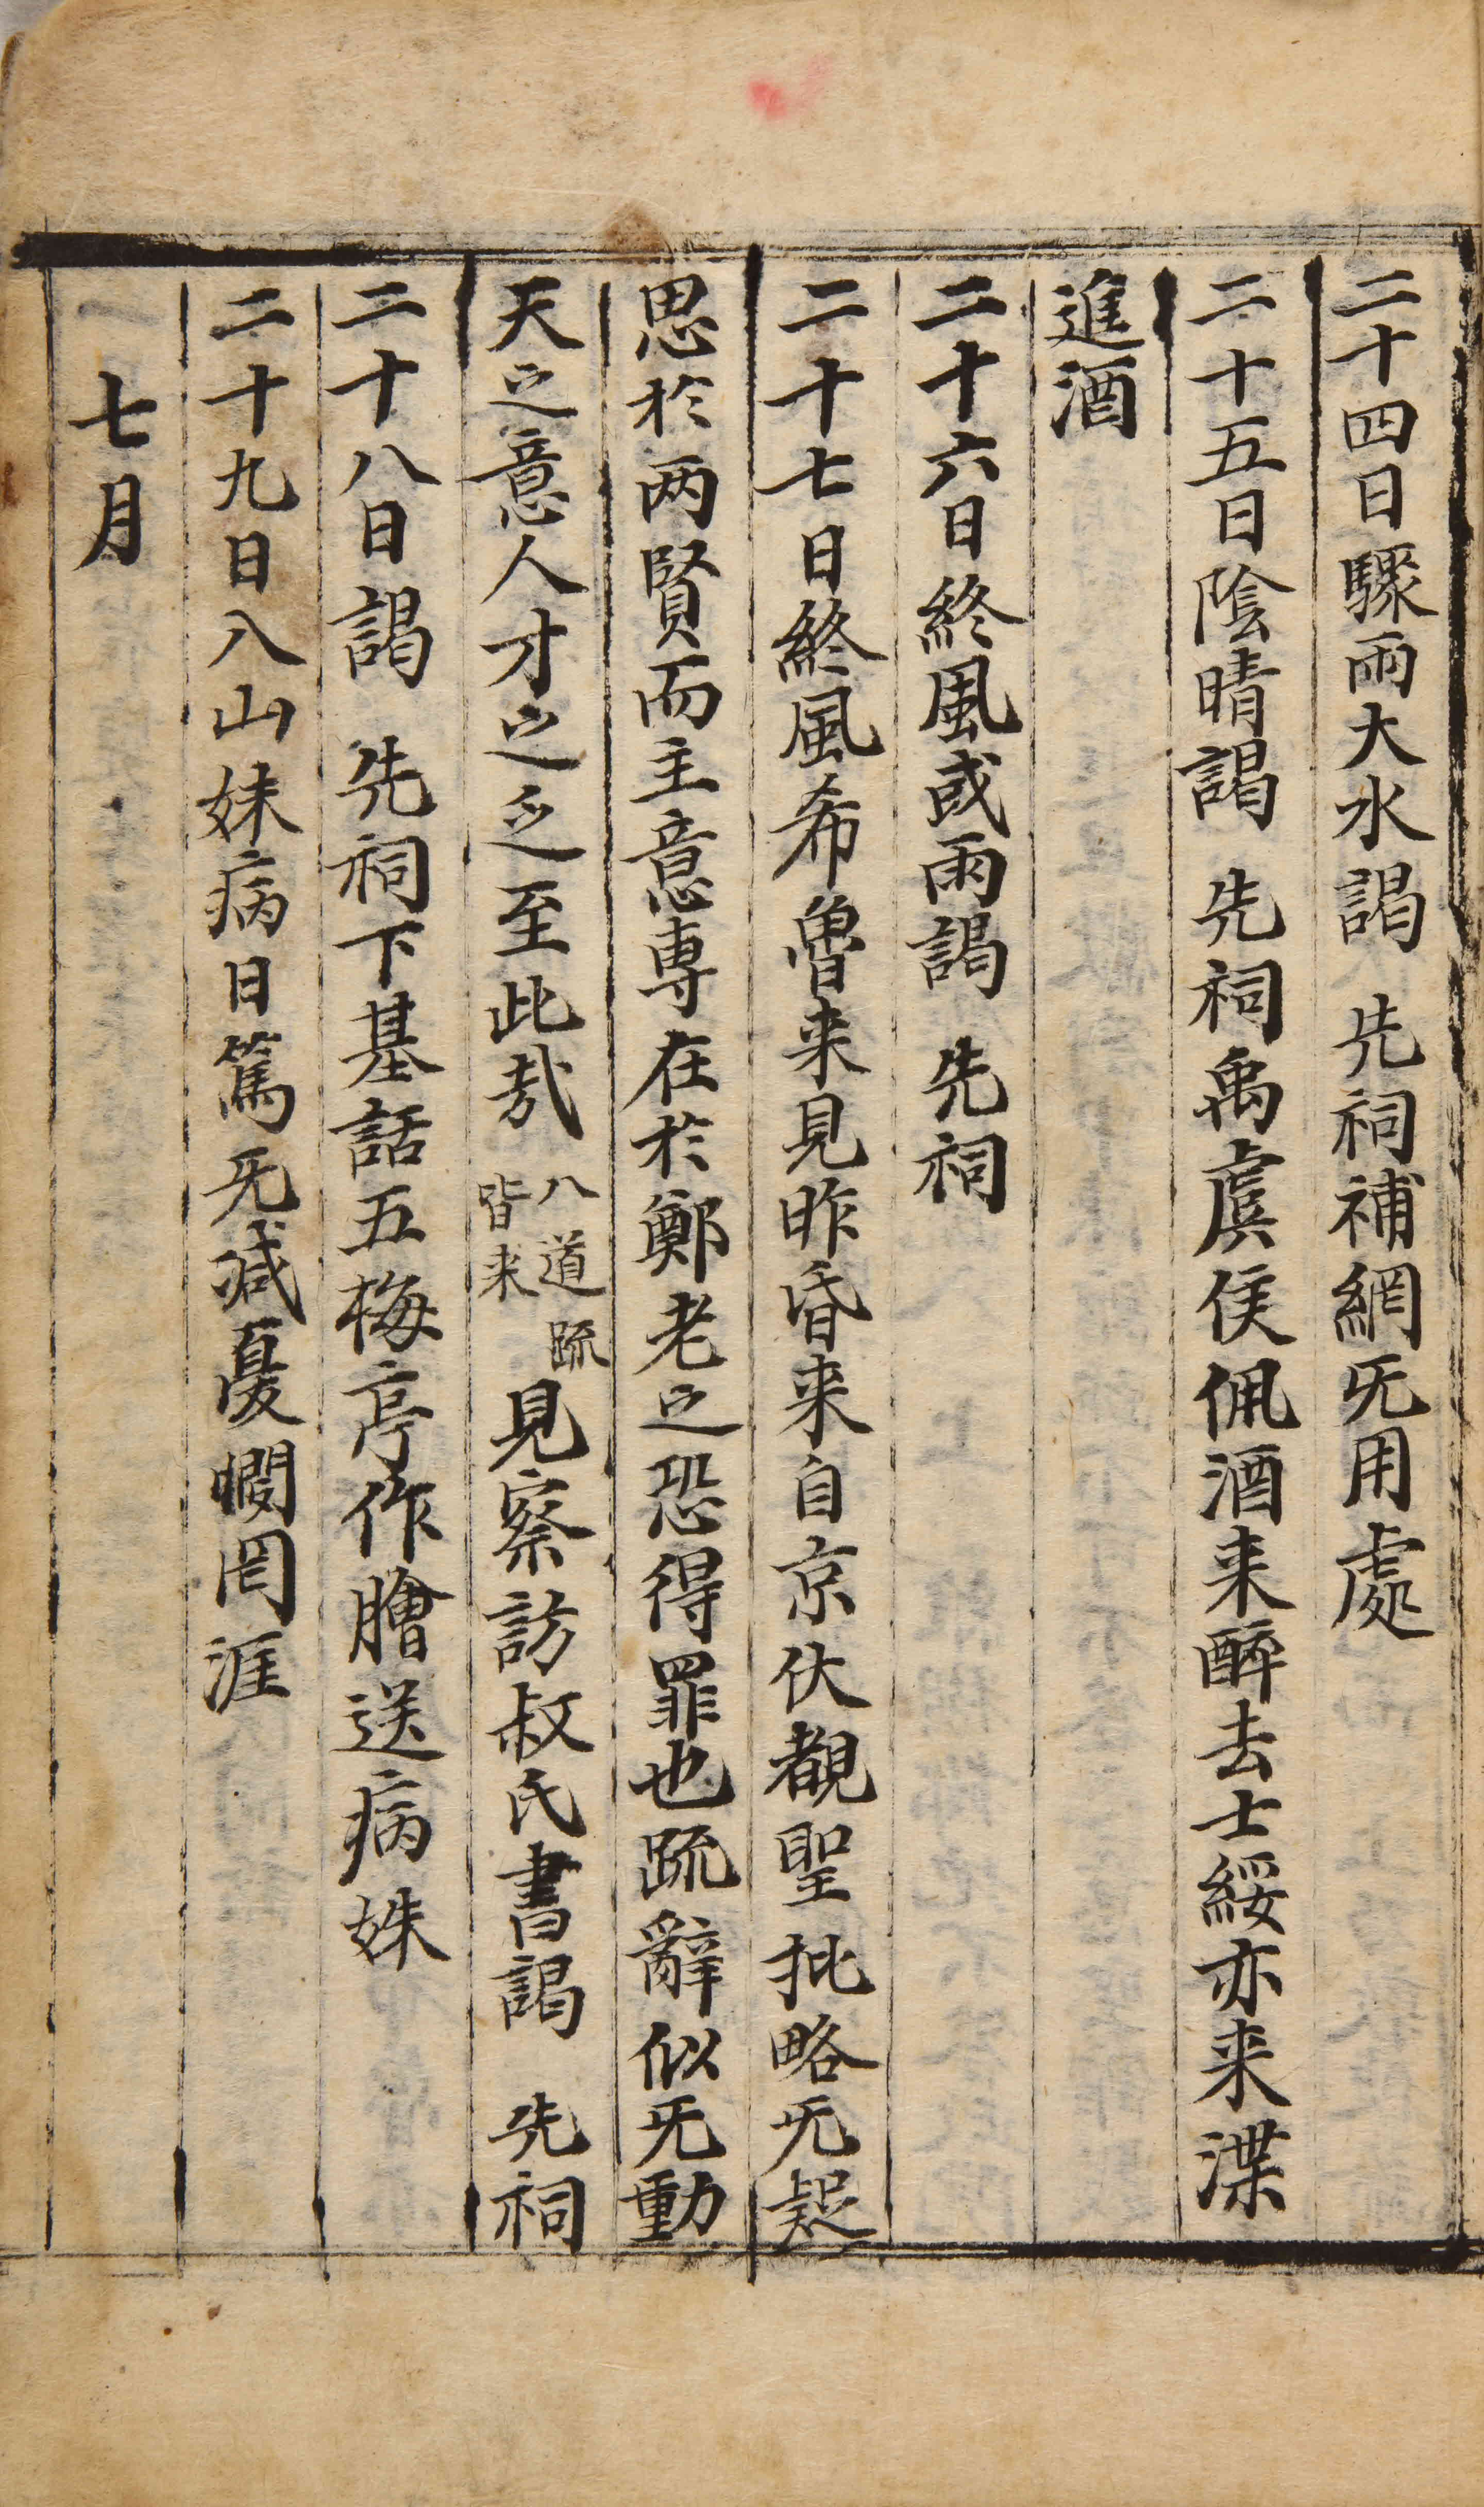 二十四日驟雨大水謁 先祠補網旡用處
二十五日陰晴謁 先祠禹虞侯佩酒来醉去士綏亦来渫
進酒
二十六日終風或雨謁 先祠
二十七日終風希魯来見昨昏来自京伏覩聖批略旡疑
思於两賢而主意專在於鄭老之恐得罪也䟽辭似旡動
天之意人才之乏至此㢤八道䟽皆来見察訪叔氏書謁 先祠
二十八日謁 先祠下基話五梅亭作膾送病妹
二十九日入山妹病日篤旡减憂悶罔涯
七月